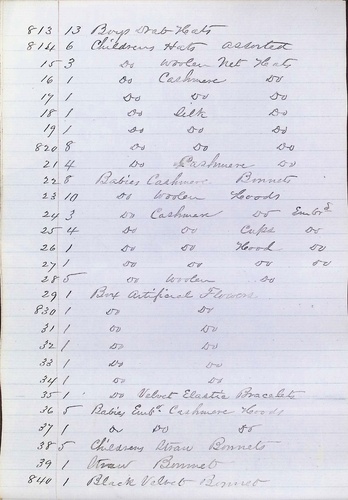 813 13 Boys Drab Hats
814 6 Childrens Hats assorted
15 3 Do Woolen Net Hats
16 1 Do Cashmere Do
17 1 Do Do Do
18 1 Do Silk Do
19 1 Do Do Do
820 8 Do Do Do
21 4 Do Cashmere Do
22 8 Babies Cashmere Bonnets
23 10 Do Woolen Hoods
24 3 Do Cashmere Do Embrd
25 4 Do Do Caps Do
26 1 Do Do Hood Do
27 1 Do Do Do Do
28 5 Do Woolen Do
29 1 Box Artificial Flowers
830 1 Do Do
31 1 Do Do
32 1 Do Do
33 1 Do Do
34 1 Do Do
35 1 Do Velvet Elastic Bracelets
36 5 Babies Embd Cashmere Hoods
37 1 Do Do Do
38 5 Childrens Straw Bonnets
39 1 Straw Bonnet
840 1 Black Velvet Bonnet